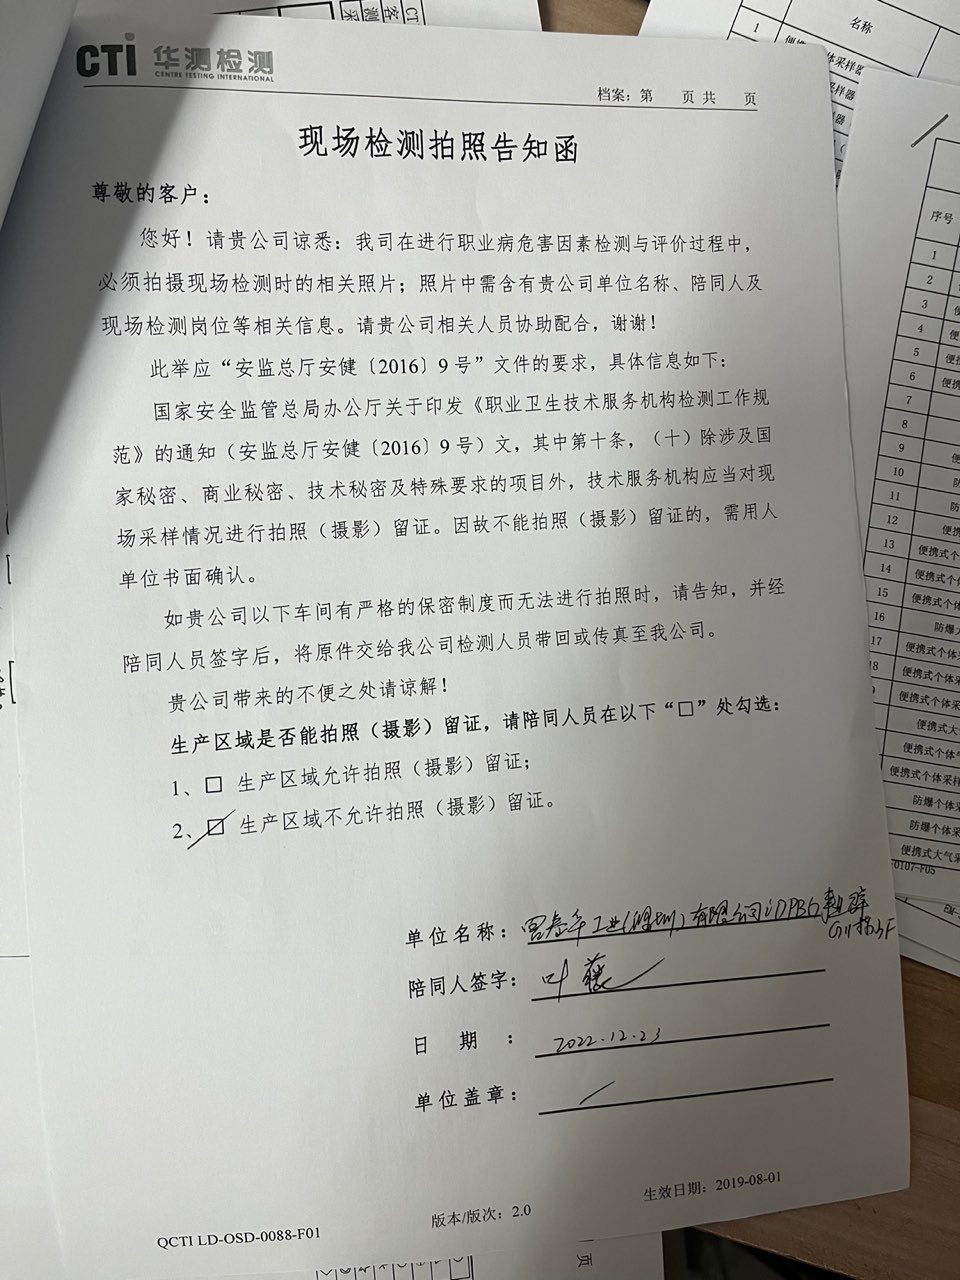 CTI 华测检测
CENTRE TESTING INTERNATIONAL
档案：第 页 共 页
现场检测拍照告知函
尊敬的客户：
您好！请贵公司谅悉：我司在进行职业病危害因素检测与评价过程中，
必须拍摄现场检测时的相关照片；照片中需含有贵公司单位名称、陪同人及
现场检测岗位等相关信息。请贵公司相关人员协助配合，谢谢！
此举应“安监总厅安健〔2016〕9 号”文件的要求，具体信息如下：
国家安全监管总局办公厅关于印发《职业卫生技术服务机构检测工作规
范》的通知（安监总厅安健〔2016〕9 号）文，其中第十条，（十）除涉及国
家秘密、商业秘密、技术秘密及特殊要求的项目外，技术服务机构应当对现
场采样情况进行拍照（摄影）留证。因故不能拍照（摄影）留证的，需用人
单位书面确认。
如贵公司以下车间有严格的保密制度而无法进行拍照时，请告知，并经
陪同人员签字后，将原件交给我公司检测人员带回或传真至我公司。
贵公司带来的不便之处请谅解！
生产区域是否能拍照（摄影）留证，请陪同人员在以下“□”处勾选：
1、□ 生产区域允许拍照（摄影）留证；
2、☑ 生产区域不允许拍照（摄影）留证。
单位名称：富泰华工业(深圳)有限公司iDPBG
陪同人签字：叶
日 期 ：2022.12.23
单位盖章：/
QCTI LD-OSD-0088-F01
版本/版次：2.0
生效日期：2019-08-01
名称
1
序号
1
2
3
4
5
6
7
8
9
10
11
12
13 便携式个
14 便携式个体
15 便携式个体
16 防爆大
17 便携式个体采
18 便携式个体采
便携式个体采
便携式大气
便携式个体气
便携式个体采样
防爆个体采
防爆个体采
便携式大气采
0107-F05